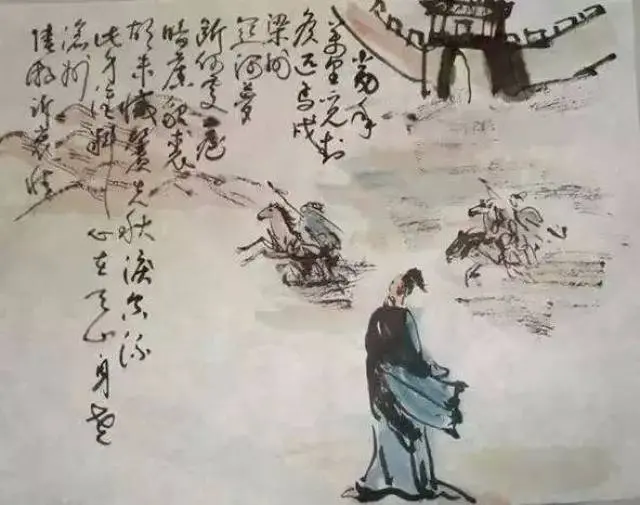 当年
万里觅封
侯匹马戍
梁州
关河梦
断何处尘
暗旧貂裘
胡未灭鬓先秋泪空流
此身谁料心在天山身老
沧州
陆游诉衷情